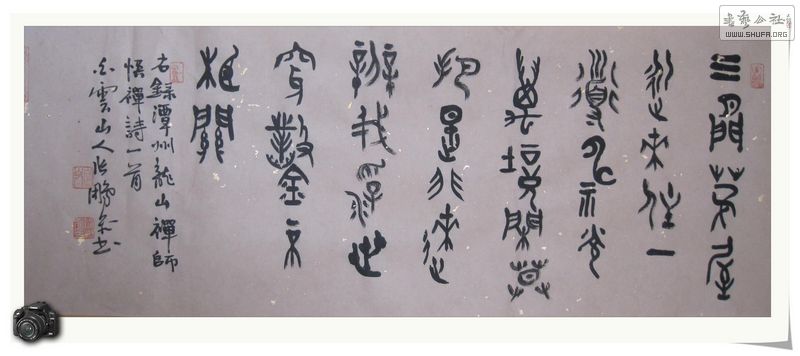 書藝公社
WWW.SHUFA.ORG
三閒茅屋
從來住一
道神光
萬境閑莫
把是非來
辦我浮世
穿鑿不
相關
右錄潭州龍山禪師
悟禪詩一首
白雲山人張鵬書